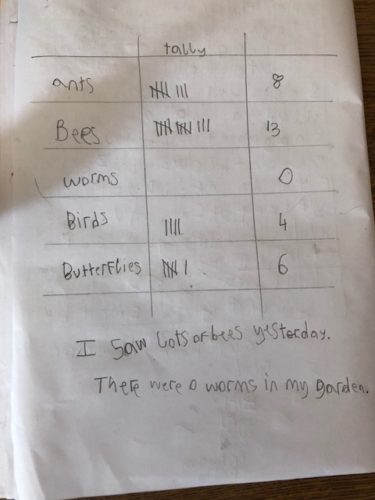 tally
ants 卌 III 8
Bees 卌 卌 III 13
worms 0
Birds IIII 4
Butterflies 卌 I 6
I Saw lots of bees yesterday.
There were 0 worms in my garden.